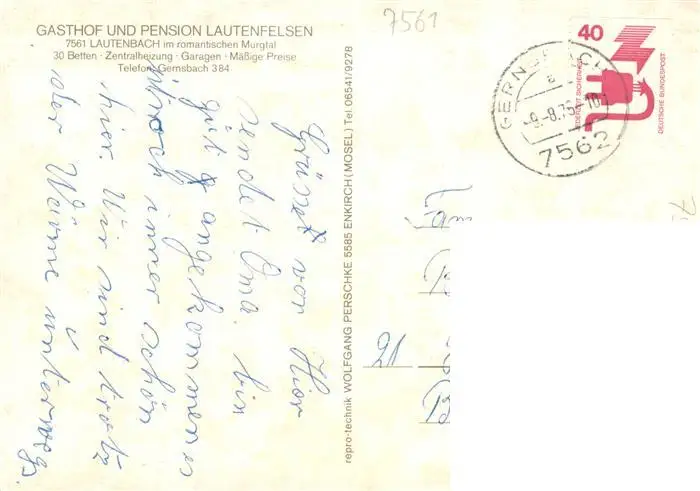 GASTHOF UND PENSION LAUTENFELSEN
7561 LAUTENBACH im romantischen Murgtal
30 Betten · Zentralheizung · Garagen · Mäßige Preise
Telefon Gernsbach 384
7561
40
JEDERZEIT SICHERHEIT
DEUTSCHE BUNDESPOST
GERNSBACH
a
-9.-8.75-10
7562
repro-technik WOLFGANG PERSCHKE 5585 ENKIRCH (MOSEL) Tel 06541/9278
Grüset von Hior
sendet Oma. bin
gut angekommen es
ist noch immer schön
hier. Wir sind trotz
der Wärme unterwegs.
Fam
21
B